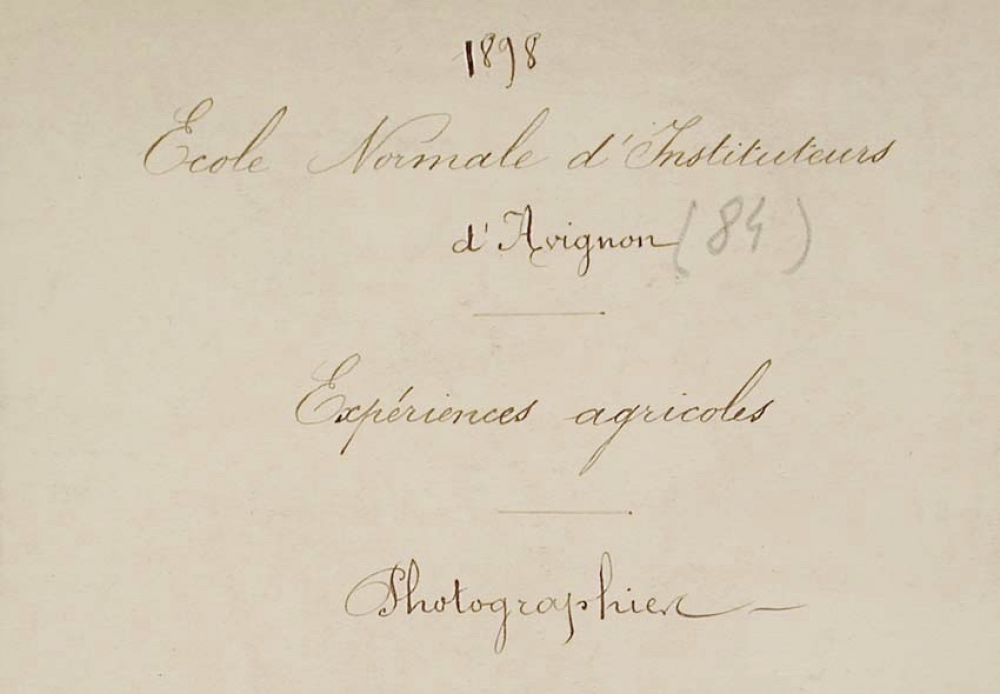 1898
École Normale d'Instituteurs
d'Avignon (84)
Expériences agricoles
Photographies